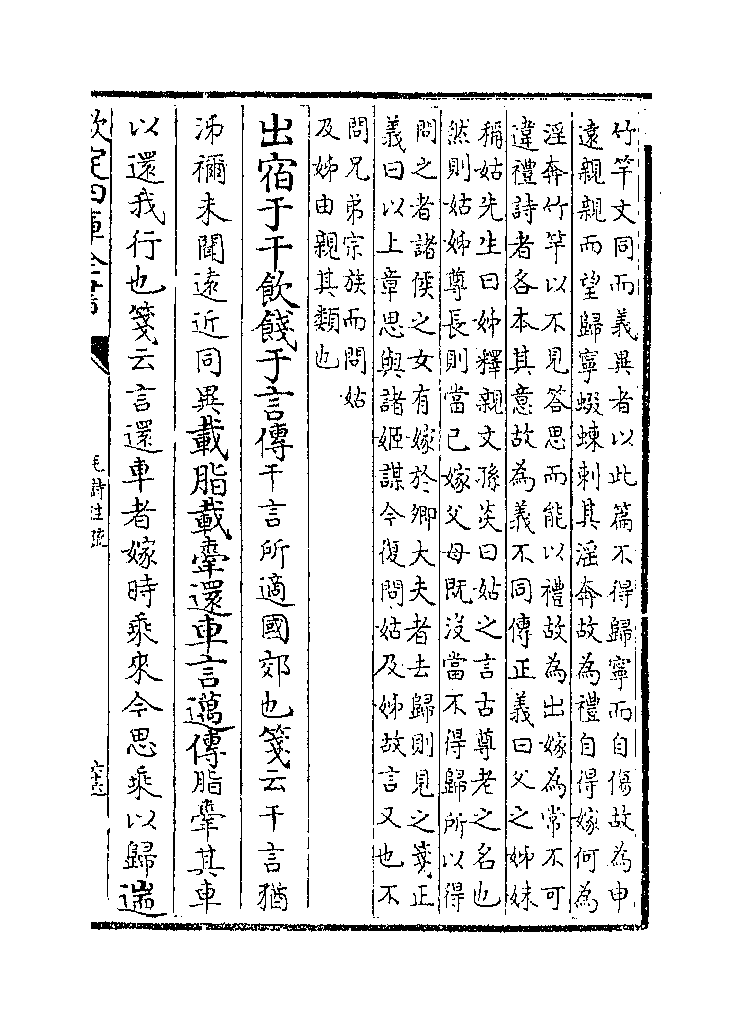 竹竿文同而義異者以此篇不得歸寧而自傷故為申
遠親親而望歸寧蝃蝀刺其淫奔故為禮自得嫁何為
淫奔竹竿以不見答思而能以禮故為出嫁為常不可
違禮詩者各本其意故為義不同傳正義曰父之姊妹
稱姑先生曰姊釋親文孫炎曰姑之言古尊老之名也
然則姑姊尊長則當已嫁父母既沒當不得歸所以得
問之者諸侯之女有嫁於卿大夫者去歸則見之箋正
義曰以上章思與諸姬謀今復問姑及姊故言又也不
問兄弟宗族而問姑
及姊由親其類也
出宿于干飲餞于言傳干言所適國郊也箋云干言猶
泲禰未聞遠近同異載脂載舝還車言邁傳脂舝其車
以還我行也箋云言還車者嫁時乘來今思乘以歸遄
欽定四庫全書
毛詩注疏